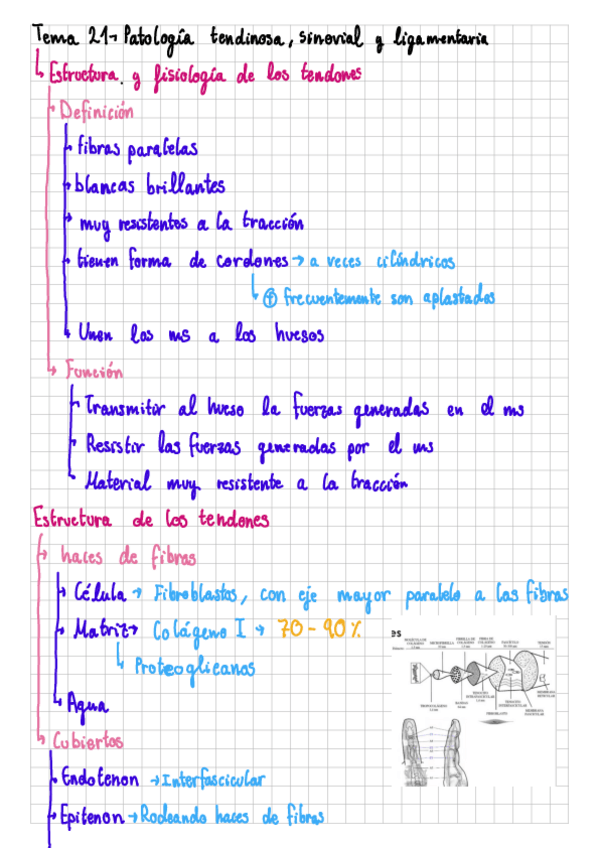 Tema 21- Patología tendinosa, sinovial y ligamentaria
Estructura y fisiología de los tendones
Definición
fibras paralelas
blancas brillantes
muy resistentes a la tracción
tienen forma de cordones → a veces cilíndricos
frecuentemente son aplastados
Unen los ms a los huesos
Función
Transmitir al hueso la fuerzas generadas en el ms
Resistir las fuerzas generadas por el ms
Material muy resistente a la tracción
Estructura de los tendones
haces de fibras
Célula → Fibroblastos, con eje mayor paralelo a las fibras
Matriz → Colágeno I → 70-90%
Proteoglicanos
Agua
Cubiertos
Endotenon → Interfascicular
Epitenon → Rodeando haces de fibras